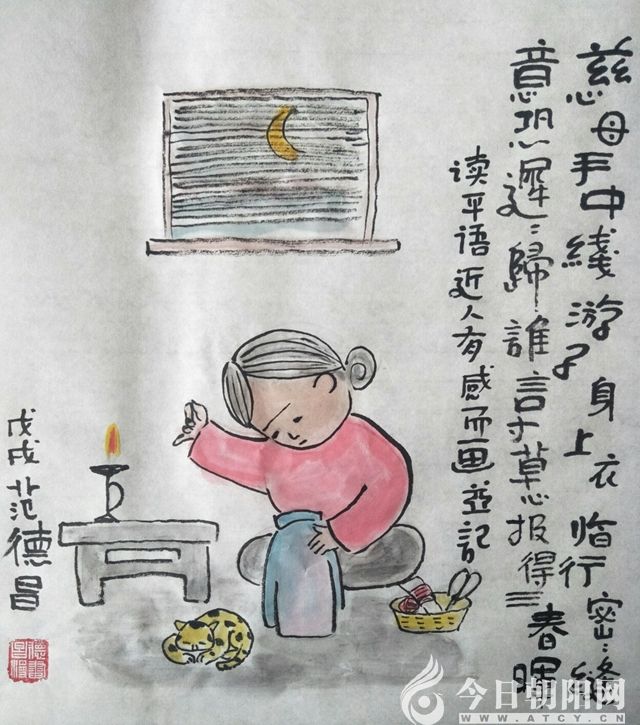 慈母手中綫游子身上衣临行密〻縫
意恐遲〻歸誰言寸草心报得三春暉
读平语近人有感而画並記
戊戌范德昌
今日朝阳网
WWW.ATCY.CN